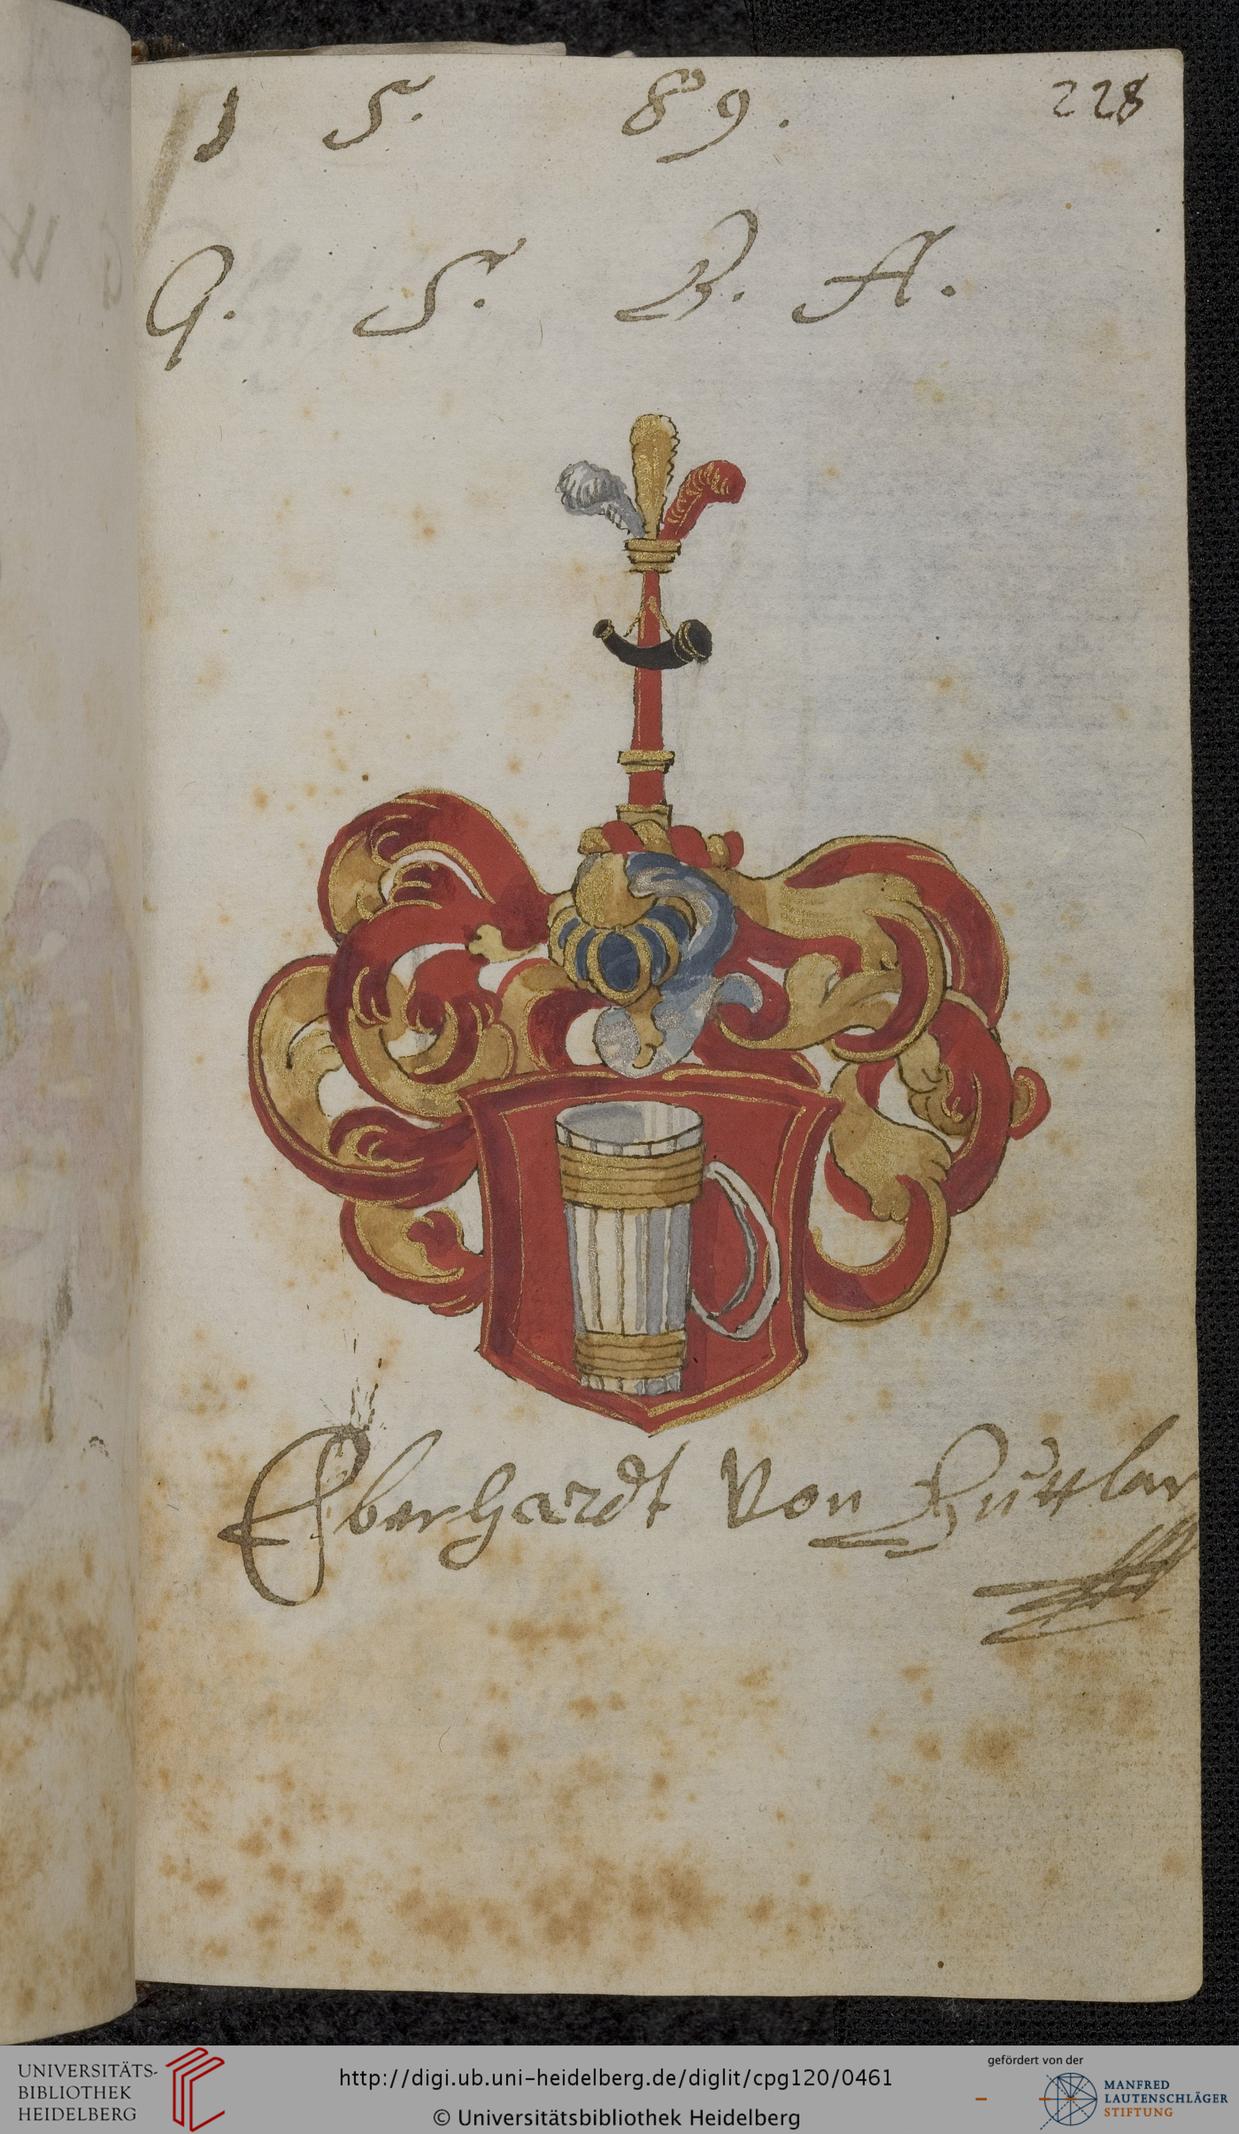 1 5. 89.
228
G. S. B. A.
Eberhardt Von Buttlar
UNIVERSITÄTS-
BIBLIOTHEK
HEIDELBERG
http://digi.ub.uni-heidelberg.de/diglit/cpg120/0461
© Universitätsbibliothek Heidelberg
gefördert von der
MANFRED
LAUTENSCHLÄGER
STIFTUNG